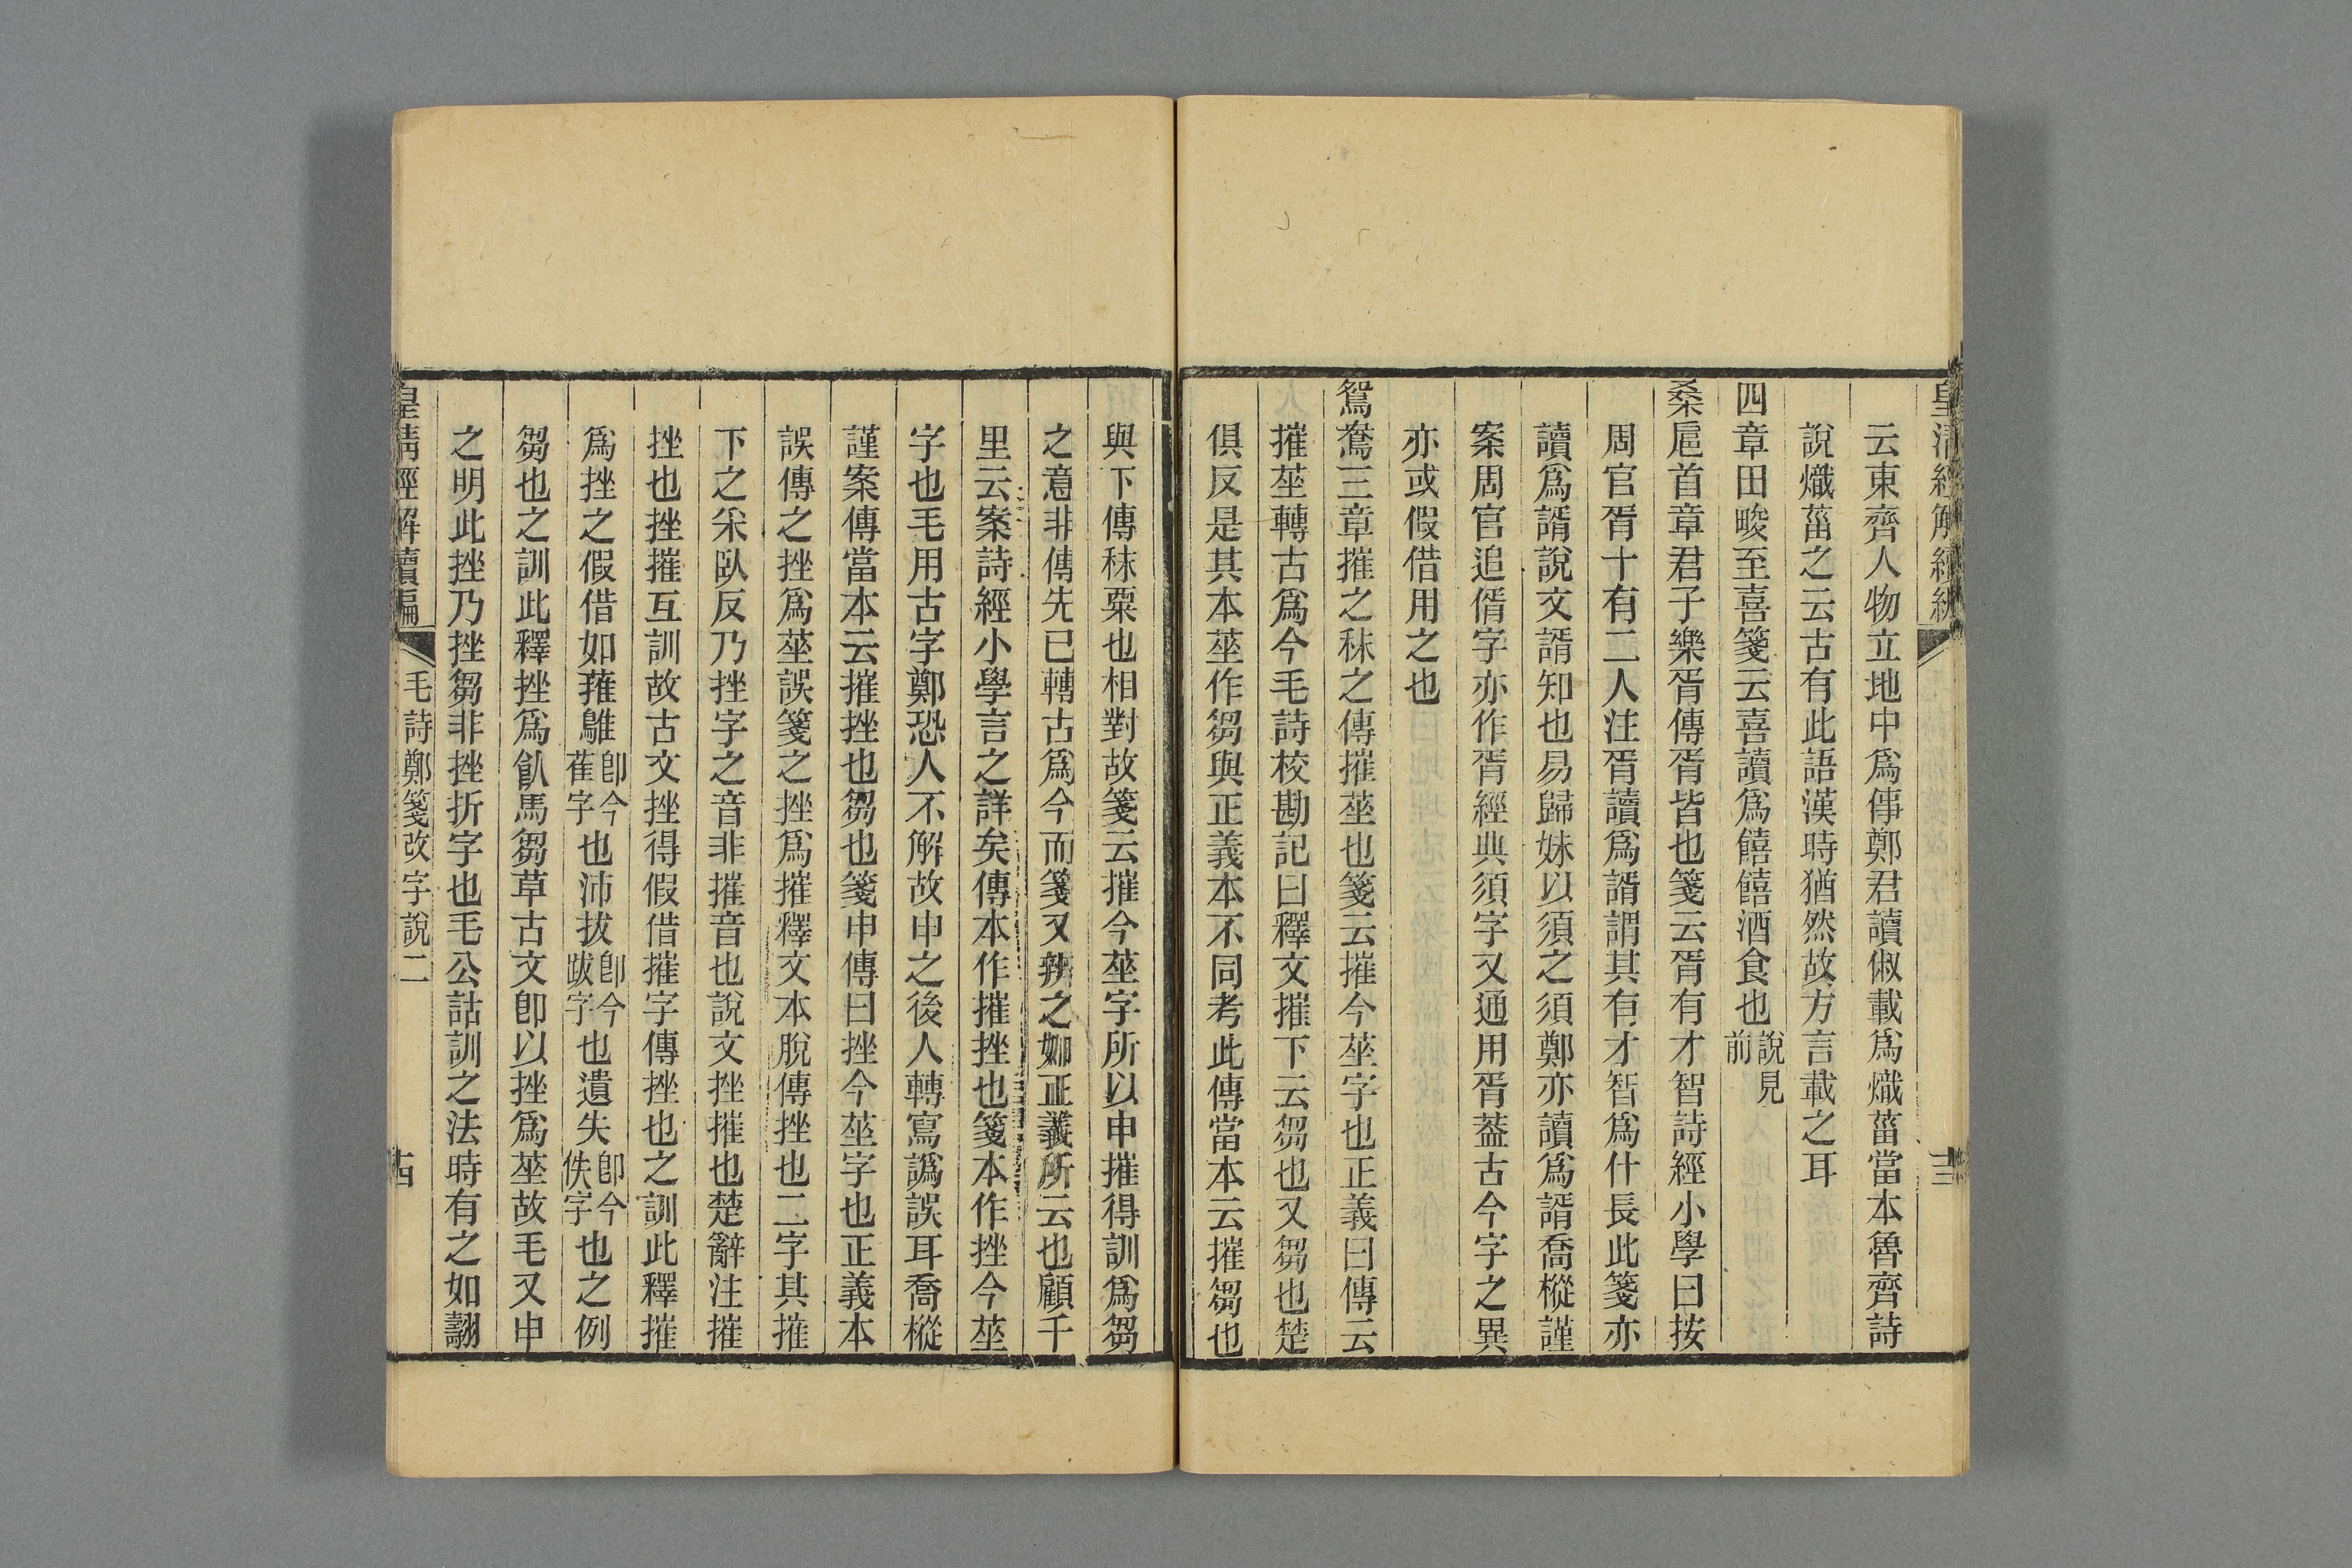 皇清經解續編
十三
云東齊人物立地中爲倳鄭君讀俶載爲熾菑當本魯齊詩
說熾菑之云古有此語漢時猶然故方言載之耳
四章田畯至喜箋云喜讀爲饎饎酒食也說見前
桑扈首章君子樂胥傳胥皆也箋云胥有才智詩經小學曰按
周官胥十有二人注胥讀爲諝謂其有才智爲什長此箋亦
讀爲諝說文諝知也易歸妹以須之須鄭亦讀爲諝喬樅謹
案周官追偦字亦作胥經典須字又通用胥葢古今字之異
亦或假借用之也
鴛鴦三章摧之秣之傳摧莝也箋云摧今莝字也正義曰傳云
摧莝轉古爲今毛詩校勘記曰釋文摧下云芻也又芻也楚
俱反是其本莝作芻與正義本不同考此傳當本云摧芻也
與下傳秣粟也相對故箋云摧今莝字所以申摧得訓爲芻
之意非傳先已轉古爲今而箋又辨之如正義所云也顧千
里云案詩經小學言之詳矣傳本作摧挫也箋本作挫今莝
字也毛用古字鄭恐人不解故申之後人轉寫譌誤耳喬樅
謹案傳當本云摧挫也芻也箋申傳曰挫今莝字也正義本
誤傳之挫爲莝誤箋之挫爲摧釋文本脫傳挫也二字其摧
下之采臥反乃挫字之音非摧音也說文挫摧也楚辭注摧
挫也挫摧互訓故古文挫得假借摧字傳挫也之訓此釋摧
爲挫之假借如蓷鵻卽今萑字也沛拔卽今跋字也遺失卽今佚字也之例
芻也之訓此釋挫爲飤馬芻草古文卽以挫爲莝故毛又申
之明此挫乃挫芻非挫折字也毛公詁訓之法時有之如翿
皇清經解續編
毛詩鄭箋改字說二
古